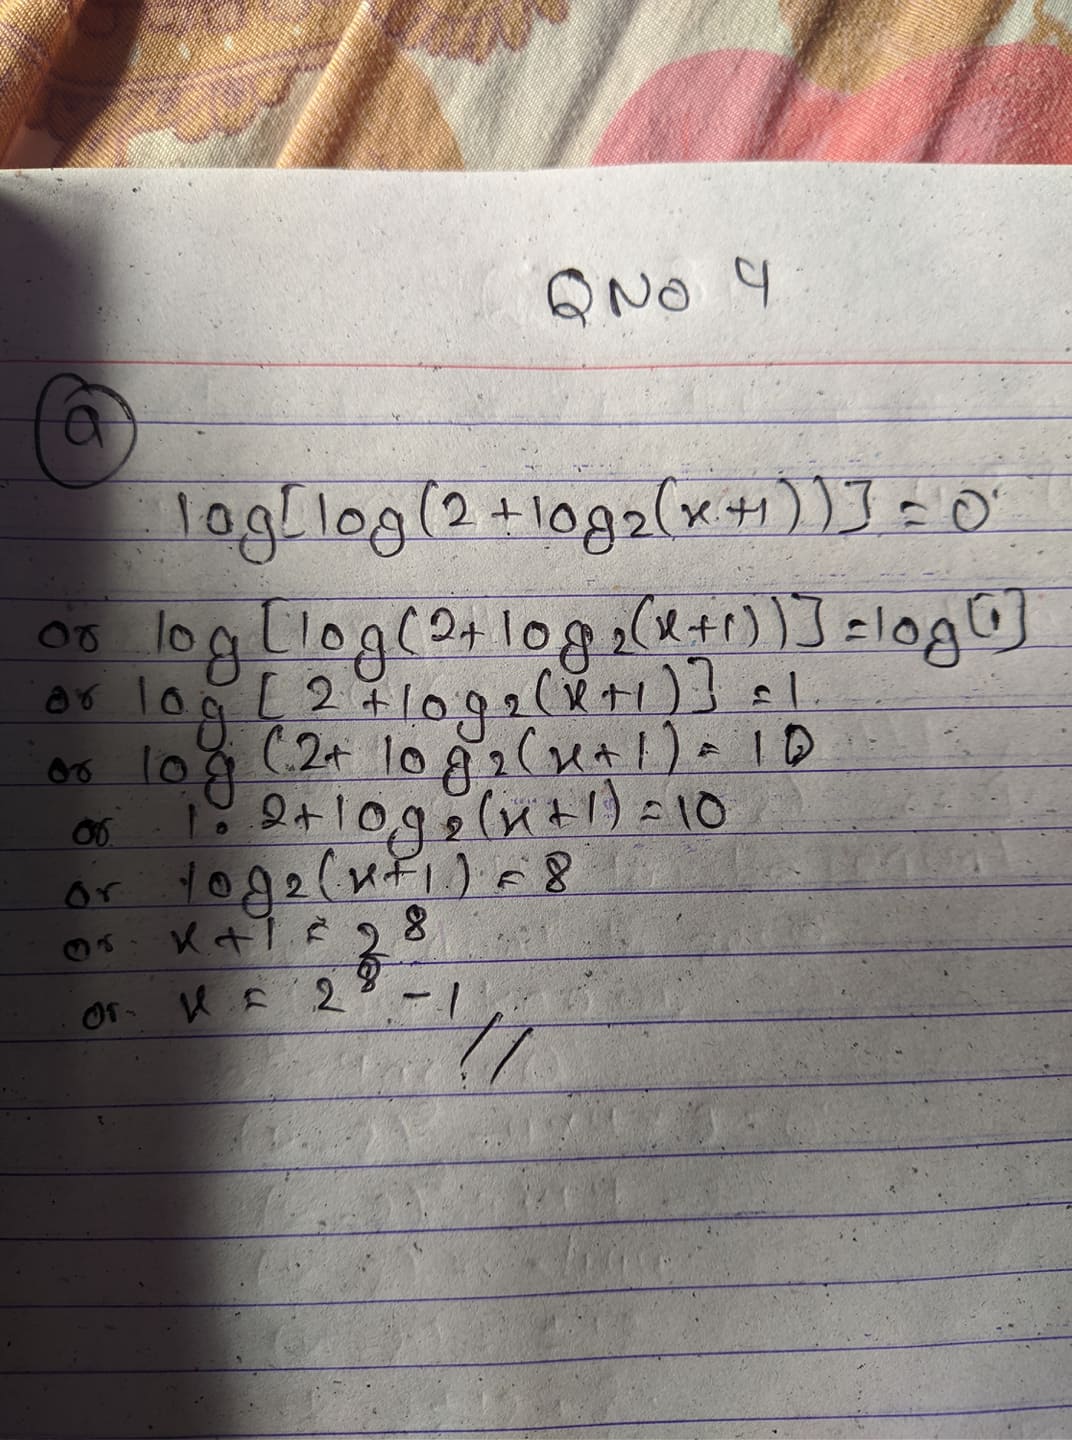 Q NO 4
a
log[log(2+log₂(x+1))] = 0
or log[log(2+log₂(x+1))] = log[1]
or log[2+log₂(x+1)] = 1
or log(2+log₂(x+1) = 10
or 1. 2+log₂(x+1) = 10
or log₂(x+1) = 8
or x+1 = 2⁸
or x = 2⁸ - 1 //